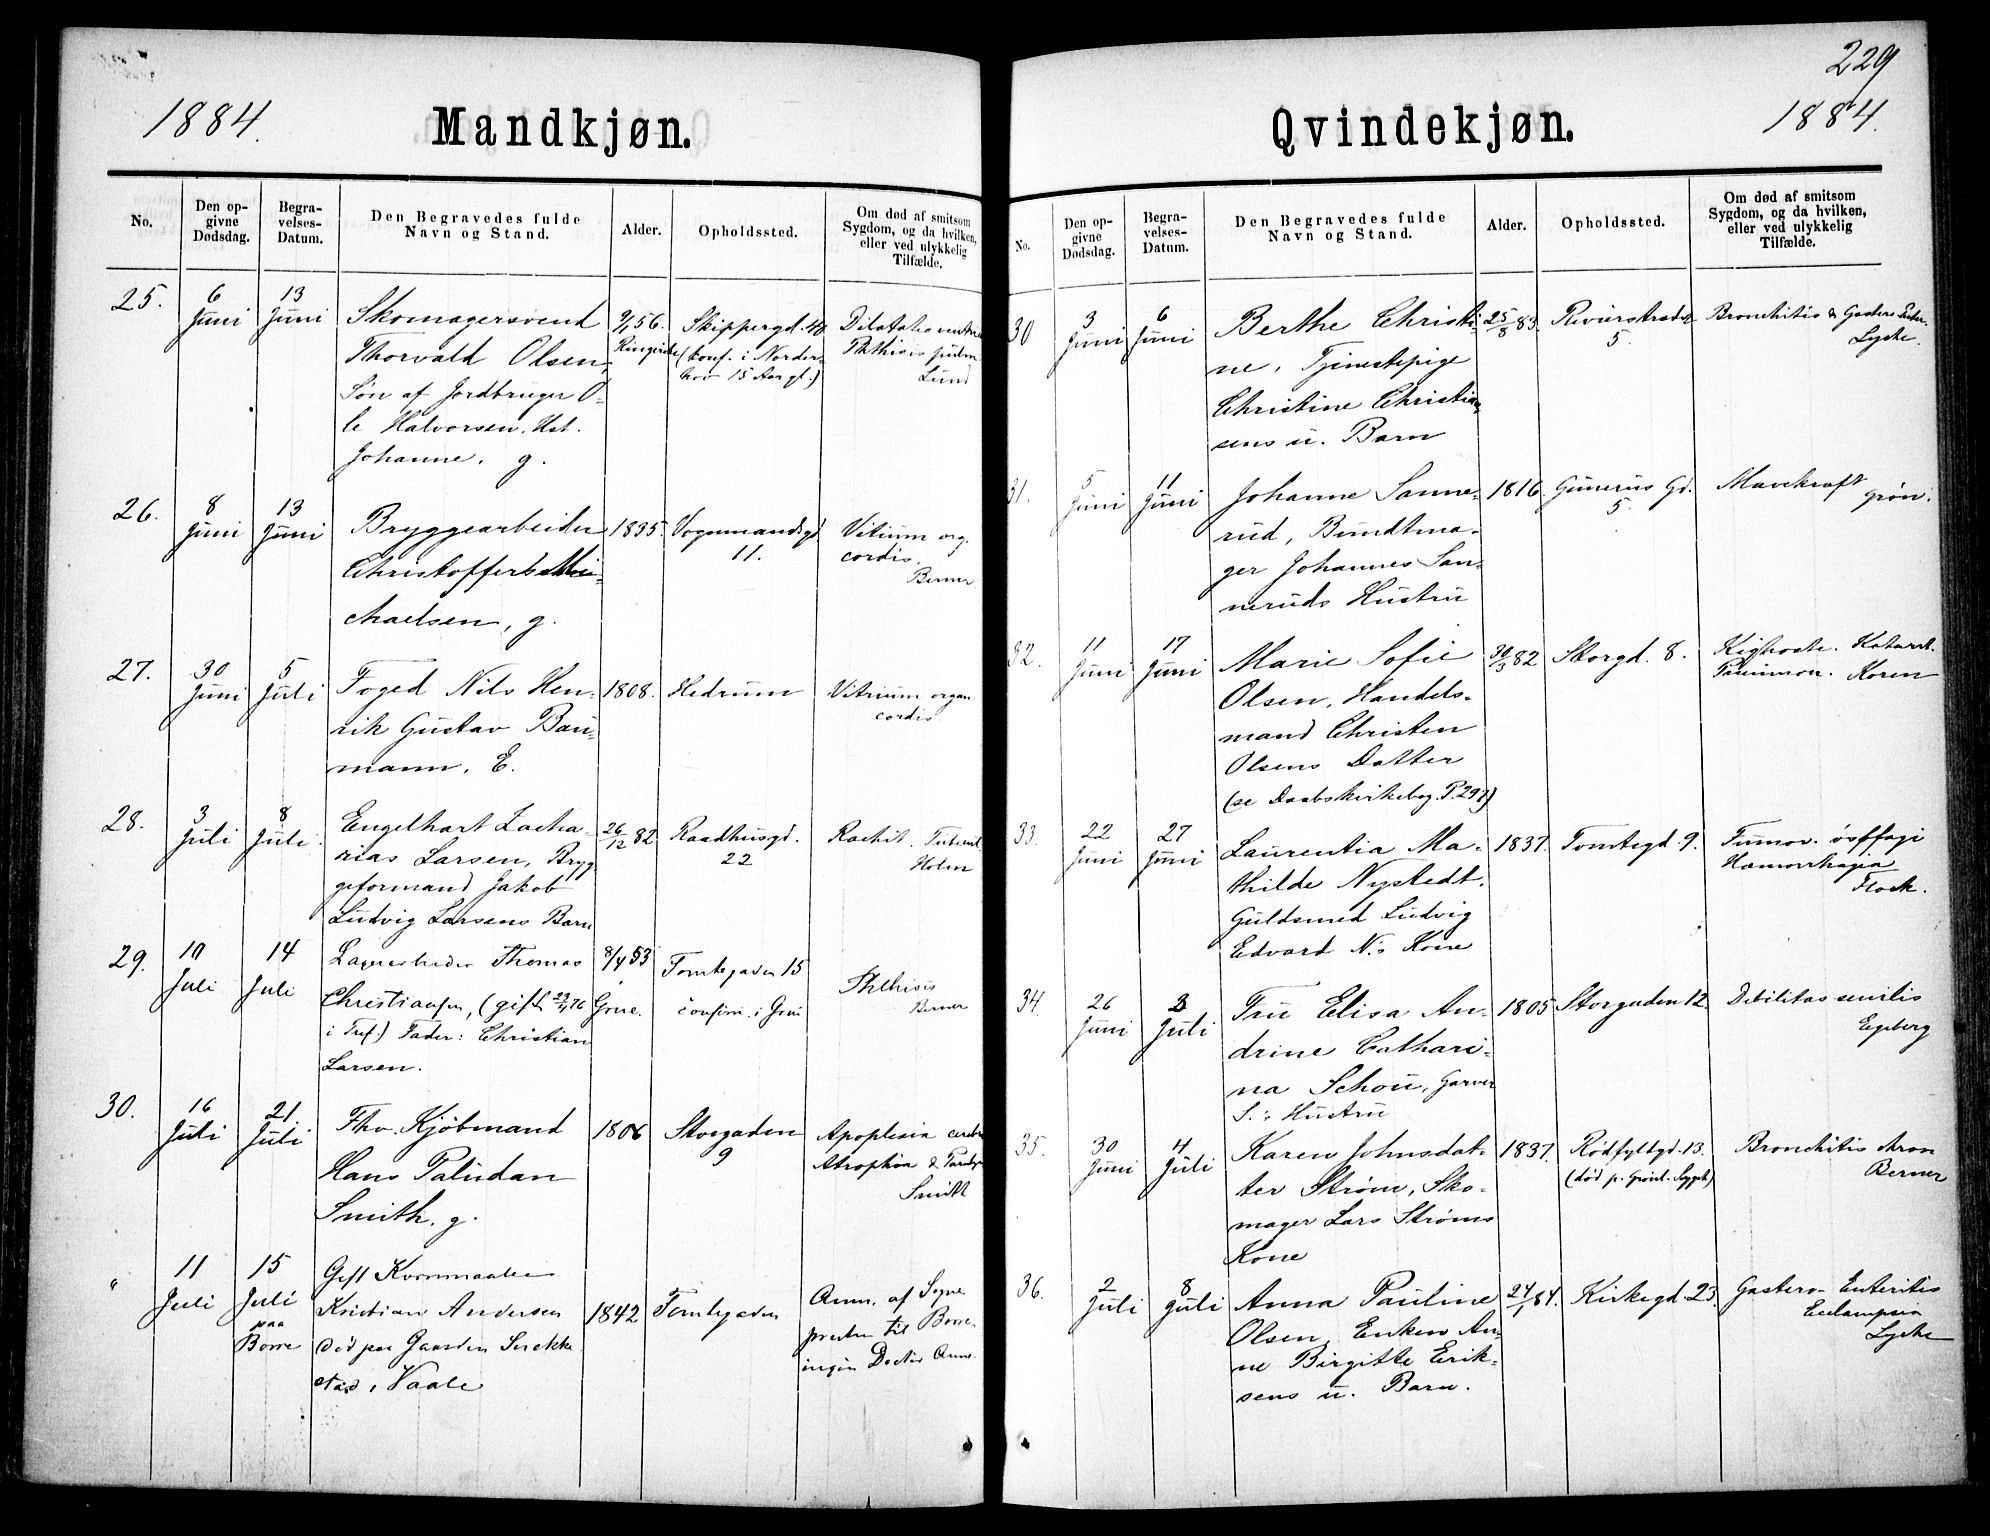 229
1884.
Mandkjøn.
No.
Den op-
givne
Dødsdag.
Begra-
velses-
Datum.
Den Begravedes fulde
Navn og Stand.
Alder.
Opholdssted.
Om død af smitsom
Sygdom, og da hvilken,
eller ved ulykkelig
Tilfælde.
25.
6
Juni
13
Juni
Skomagersvend
Thorvald Olsen,
Søn af Jordbruger O-
le Halvorsen, Hst.
Johanne. g.
9/1 56.
Ringerike
Skippergd. 48
(konf. i Norder-
hov 15 Aar gl.)
Dilatatio
Phthisis pulm
Lund
26.
8
Juni
13
Juni
Bryggearbeider
Christoffer Mi-
chaelsen, g.
1835.
Vognmandsgd
11.
Vitium org.
cordis.
Berner
27.
30
Juni
5
Juli
Foged Nils Hen-
rik Gustav Bau-
mann. E.
1808.
Hedrum
Vitrium organ
cordis
28.
3
Juli
8
Juli.
Engelhart Zacha-
rias Larsen, Bryg
geformand Jakob
Ludvig Larsens Barn
26/12 82
Raadhusgd.
22
Rachit.
Holm
29.
10
Juli
14
Juli
Thomas
Christiansen, (gift
i Tref.) Fader: Christian
Larsen.
8/4 53
Grue.
Tomtegaden 15
confirm. i Grue
Phthisis
Berner
30.
16
Juli
21.
Juli
Fhv. Kjöbmand
Hans Paludan
Smith. g.
1806
Storgaden
9
Apoplexia cereb
Atrophia &
Smith
"
11
Juli
15
Juli
paa
Borre
Gift Kornmaaler
Kristian Andersen
Død paa Gaarden
stad, Vaale
1842
Tomtegaden
Anm. af Sogne
presten til Borre.
ingen Doctor Anm.
Qvindekjøn.
1884.
No.
Den op-
givne
Dødsdag.
Begra-
velses-
Datum.
Den Begravedes fulde
Navn og Stand.
Alder.
Opholdssted.
Om død af smitsom
Sygdom, og da hvilken,
eller ved ulykkelig
Tilfælde.
30
3
Juni
6
Juni
Berthe Christi-
ne, Tjenestepige
Christine Christian-
sens u. Barn
25/8 83.
Revierstrædet
5.
Bronchitis & Gastero Enter.
Lyche.
31.
5
Juni
11
Juni
Johanne Sanne-
rud, Bundtma-
ger Johannes San-
neruds Hustru
1816.
Gunerus Gd.
5.
Mavekræft
Grøn.
32.
11
Juni
17
Juni
Marie Sofie
Olsen, Handels-
mand Christen
Olsens Datter
(se Daabskirkebog. P. 297)
30/3 82
Storgd. 8.
Kighoste. Katarrh.
Pneumon. Koren
33.
22
Juni
27
Juni
Laurentia Ma-
thilde Nystedt.
Guldsmed Ludvig
Edvard N.s Kone
1837.
Tomtegd. 9.
Tumor. øsoffagi
Hæmorrhagia
Flock.
34.
26
Juni
2
Juli
Fru Elisa An-
drine Cathari-
na Schou, Garver
S.'s Hustru
1805
Storgaden 12.
Debilitas senilis
Egeberg
35.
30
Juni
4
Juli
Karen Johnsdat-
ter Strøm, Sko-
mager Lars Strøms
Kone
1837.
Rødfyldgd. 13.
(død p. Grønl. Sygeh)
Bronchitis chron
Berner
36.
2
Juli
8
Juli
Anna Pauline
Olsen, Enken An-
ne Birgitte Erik-
sens u. Barn.
24/1 84.
Kirkegd. 23.
Gastero Enteritis
Eclampsia
Lyche